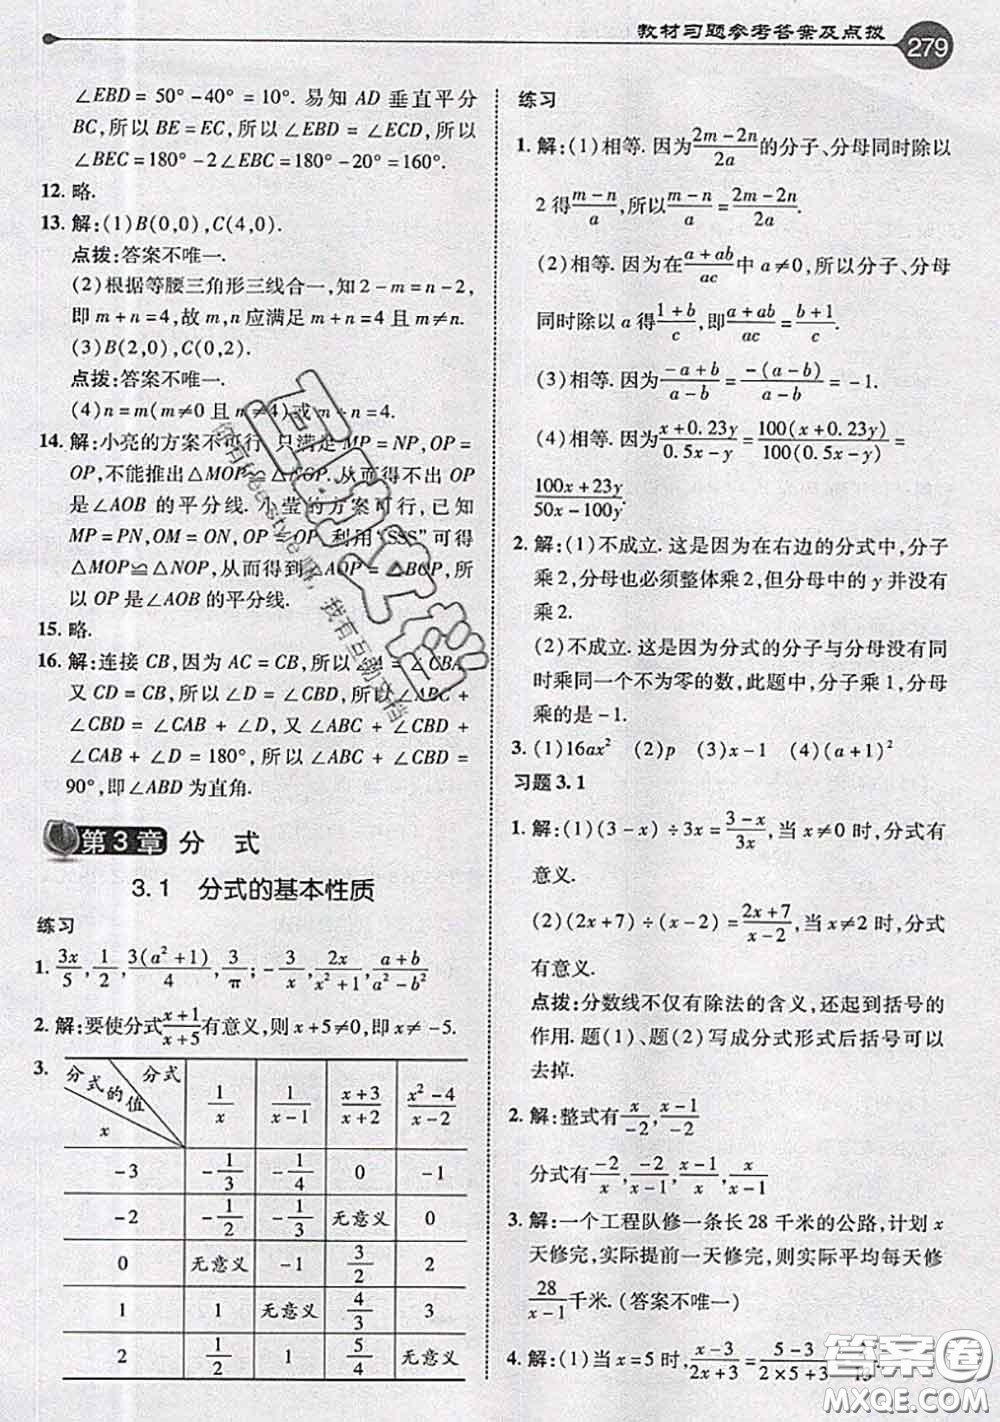 教材习题参考答案及点拨 279
∠EBD = 50° - 40° = 10°. 易知 AD 垂直平分
BC,所以 BE = EC,所以∠EBD = ∠ECD,所以
∠BEC = 180° - 2∠EBC = 180° - 20° = 160°.
12. 略.
13. 解:(1)B(0,0),C(4,0).
点拨:答案不唯一.
(2)根据等腰三角形三线合一,知 2 - m = n - 2,
即 m + n = 4,故 m,n 应满足 m + n = 4 且 m≠n.
(3)B(2,0),C(0,2).
点拨:答案不唯一.
(4)n = m(m≠0 且 n≠4)或 m + n = 4.
14. 解:小亮的方案不可行. 只满足 MP = NP,OP =
OP,不能推出△MOP≌△NOP. 从而得不出 OP
是∠AOB 的平分线. 小莹的方案可行,已知
MP = PN,OM = ON,OP = OP. 利用“SSS”可得
△MOP≌△NOP,从而得到∠AOP = ∠BOP,所
以 OP 是∠AOB 的平分线.
15. 略.
16. 解:连接 CB,因为 AC = CB,所以∠A = ∠CBA.
又 CD = CB,所以∠D = ∠CBD,所以∠ABC +
∠CBD = ∠CAB + ∠D,又∠ABC + ∠CBD +
∠CAB + ∠D = 180°,所以∠ABC + ∠CBD =
90°,所以∠ABD 为直角.
第3章 分 式
3.1 分式的基本性质
练习
1. 3x/5, 1/2, 3(a²+1)/4, 3/π; -3/x, 2x/(x²+1), (a+b)/(a²-b²)
2. 解:要使分式(x+1)/(x+5)有意义,则 x+5≠0,即 x≠-5.
3. 分式的值 分式 x 1/x 1/(x-1) (x+3)/(x+2) (x²-4)/(x-2)
-3 -1/3 -1/4 0 -1
-2 -1/2 -1/3 无意义 0
0 无意义 -1 3/2 2
1 1 无意义 4/3 3
2 1/2 1 5/4 无意义
练习
1. 解:(1)相等. 因为(2m-2n)/2a的分子、分母同时除以
2 得(m-n)/a,所以(m-n)/a = (2m-2n)/2a.
(2)相等. 因为在(a+ab)/ac中 a≠0,所以分子、分母
同时除以 a 得(1+b)/c,即(a+ab)/ac = (b+1)/c.
(3)相等. 因为(-a+b)/(a-b) = -(a-b)/(a-b) = -1.
(4)相等. 因为(x+0.23y)/(0.5x-y) = 100(x+0.23y)/100(0.5x-y) =
(100x+23y)/(50x-100y).
2. 解:(1)不成立. 这是因为在右边的分式中,分子
乘 2,分母也必须整体乘 2,但分母中的 y 并没有
乘 2.
(2)不成立. 这是因为分式的分子与分母没有同
时乘同一个不为零的数,此题中,分子乘 1,分母
乘的是 -1.
3. (1)16ax² (2)p (3)x-1 (4)(a+1)²
习题 3.1
1. 解:(1)(3-x)÷3x = (3-x)/3x,当 x≠0 时,分式有
意义.
(2)(2x+7)÷(x-2) = (2x+7)/(x-2),当 x≠2 时,分式
有意义.
点拨:分数线不仅有除法的含义,还起到括号的
作用. 题(1)、题(2)写成分式形式后括号可以
去掉.
2. 解:整式有x/-2, (x-1)/-2
分式有-2/x, -2/(x-1), (x-1)/x, x/(x-1).
3. 解:一个工程队修一条长 28 千米的公路,计划 x
天修完,实际提前一天修完,则实际平均每天修
28/(x-1)千米. (答案不唯一)
4. 解:(1)当 x=5 时,(x-3)/(2x+3) = (5-3)/(2×5+3) =
答案圈
MXQE.COM